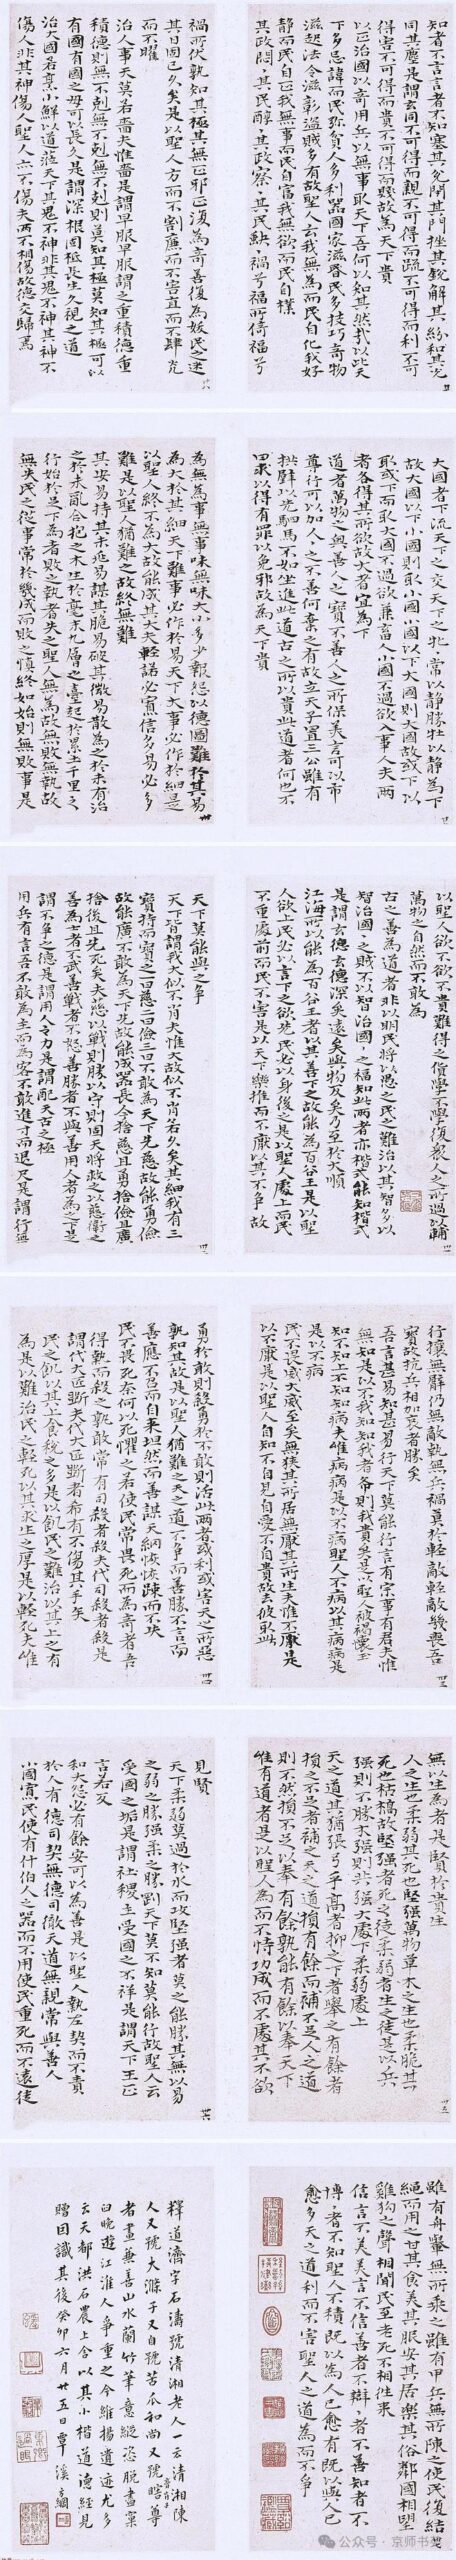 知者不言言者不知塞其兌閉其門挫其銳解其紛和其光
同其塵是謂玄同不可得而親不可得而疏不可得而利不可
得而害不可得而貴不可得而賤故為天下貴
以正治國以奇用兵以無事取天下吾何以知其然哉以此天
下多忌諱而民弥貧人多利器國家滋昏民多技巧奇物
滋起法令滋彰盜賊多有故聖人云我無為而民自化我好
静而民自正我無事而民自富我無欲而民自樸
其政悶〻其民醇〻其政察〻其民缺〻禍兮福所倚福兮
禍所伏孰知其極其無正邪正復為奇善復為妖民之迷
其日固已久矣是以聖人方而不割廉而不害直而不肆光
而不曜
治人事天莫若嗇夫惟嗇是謂早服早服謂之重積德重
積德則無不剋無不剋則莫知其極莫知其極可以
有國有國之母可以長久是謂深根固柢長生久視之道
治大國若烹小鮮以道莅天下其鬼不神非其鬼不神其神不
傷人非其神傷人聖人亦不傷夫兩不相傷故德交歸焉
大國者下流天下之交天下之牝常以靜勝牡以靜為下
故大國以下小國則取小國小國以下大國則大國故或下以
取或下而取大國不過欲兼畜人小國不過欲入事人夫兩
者各得其所欲故大者宜為下
道者萬物之奧善人之寶不善人之所保美言可以市
尊行可以加人人之不善何棄之有故立天子置三公雖有
拱璧以先駟馬不如坐進此道古之所以貴此道者何也不
曰求以得有罪以免邪故為天下貴
為無為事無事味無味大小多少報怨以德圖難於其易
為大於其細天下難事必作於易天下大事必作於細是
以聖人終不為大故能成其大夫輕諾必寡信多易必多
難是以聖人猶難之故終無難
其安易持其未兆易謀其脆易破其微易散為之於未有治
之於未亂合抱之木生於毫末九層之臺起於累土千里之
行始於足下為者敗之執者失之聖人無為故無敗無執故
無失民之從事常於幾成而敗之慎終如始則無敗事是
以聖人欲不欲不貴難得之貨學不學復衆人之所過以輔
萬物之自然而不敢為
古之善為道者非以明民將以愚之民之難治以其智多以
智治國國之賊不以智治國國之福知此兩者亦楷式能知楷式
是謂玄德玄德深矣遠矣與物反矣乃至於大順
江海所以能為百谷王者以其善下之故能為百谷王是以聖
人欲上民必以言下之欲先民必以身後之是以聖人處上而民
不重處前而民不害是以天下樂推而不厭以其不爭故
天下莫能與之爭
天下皆謂我大似不肖夫惟大故似不肖若肖久矣其細我有三
寶持而寶之一曰慈二曰儉三曰不敢為天下先慈故能勇儉
故能廣不敢為天下先故能成器長今捨慈且勇捨儉且廣
捨後且先死矣夫慈以戰則勝以守則固天將救之以慈衛之
善為士者不武善戰者不怒善勝者不與善用人者為之下是
謂不爭之德是謂用人之力是謂配天古之極
用兵有言吾不敢為主而為客不敢進寸而退尺是謂行無
行攘無臂仍無敵執無兵禍莫於輕敵輕敵幾喪吾
寶故抗兵相加哀者勝矣
吾言甚易知甚易行天下莫能行言有宗事有君夫惟
無知是以不我知知我者希則我貴矣是以聖人被褐懷玉
知不知上不知知病夫惟病病是以不病聖人不病以其病病是
是以不病
民不畏威大威至矣無狹其所居無厭其所生夫惟不厭是
以不厭是以聖人自知不自見自愛不自貴故去彼取此
勇於敢則殺勇於不敢則活此兩者或利或害天之所惡
孰知其故是以聖人猶難之天之道不爭而善勝不言而
善應不召而自来坦然而善謀天網恢恢疎而不失
民不畏死奈何以死懼之若使民常畏死而為奇者吾
得執而殺之孰敢常有司殺者殺夫代司殺者殺是
謂代大匠斲夫代大匠斲者希有不傷其手矣
民之飢以其上食稅之多是以飢民之難治以其上之有
為是以難治民之輕死以其求生之厚是以輕死夫惟
無以生為者是賢於貴生
人之生也柔弱其死也堅強萬物草木之生也柔脆其
死也枯槁故堅强者死之徒柔弱者生之徒是以兵
强則不勝木强則共强大處下柔弱處上
天之道其猶張弓乎高者抑之下者舉之有餘者
損之不足者補之天之道損有餘而補不足人之道
則不然損不足以奉有餘孰能有餘以奉天下
惟有道者是以聖人為而不恃功成而不處其不欲
見賢
天下柔弱莫過於水而攻堅强者莫之能勝其無以易
之弱之勝强柔之勝剛天下莫不知莫能行故聖人云
受國之垢是謂社稷主受國之不祥是謂天下王正
言若反
和大怨必有餘怨安可以為善是以聖人執左契而不責
於人有德司契無德司徹天道無親常與善人
小國寡民使有什伯人之器而不用使民重死而不遠徙
雖有舟轝無所乘之雖有甲兵無所陳之使民復結
繩而用之甘其食美其服安其居樂其俗鄰國相望
雞狗之聲相聞民至老死不相往来
信言不美美言不信善者不辯辯者不善知者不
博博者不知聖人不積既以為人己愈有既以與人己
愈多天之道利而不害聖人之道為而不爭
釋道濟字石濤號清湘老人一云清湘陳
人又號大滌子又自號苦瓜和尚又號瞎尊
者畫兼善山水蘭竹筆意縱恣脫盡窠
臼晚遊江淮人爭重之今維揚遺迹尤多
云天都洪石農上舍以其小楷道德經見
贈因識其後癸卯六月廿五日覃溪
公众号·京师书画